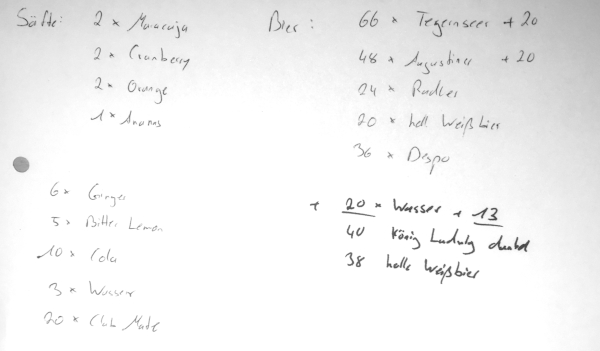 Säfte: 2 x Maracuja
2 x Cranberry
2 x Orange
1 x Ananas
Bier: 66 x Tegernseer + 20
48 x Augustiner + 20
24 x Radler
20 x hell Weißbier
36 x Despo
6 x Ginger
5 x Bitter Lemon
10 x Cola
3 x Wasser
20 x Club Mate
+ 20 x Wasser + 13
40 König Ludwig dunkel
38 helle Weißbier